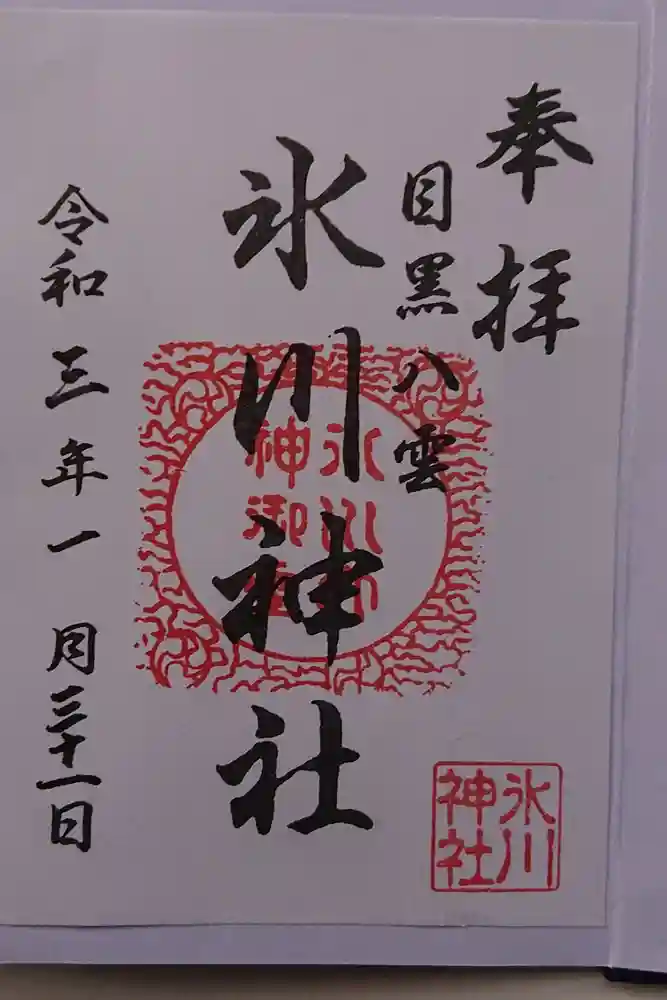 奉拝
目黒八雲
氷川神社
令和三年一月三十一日
氷川
神社